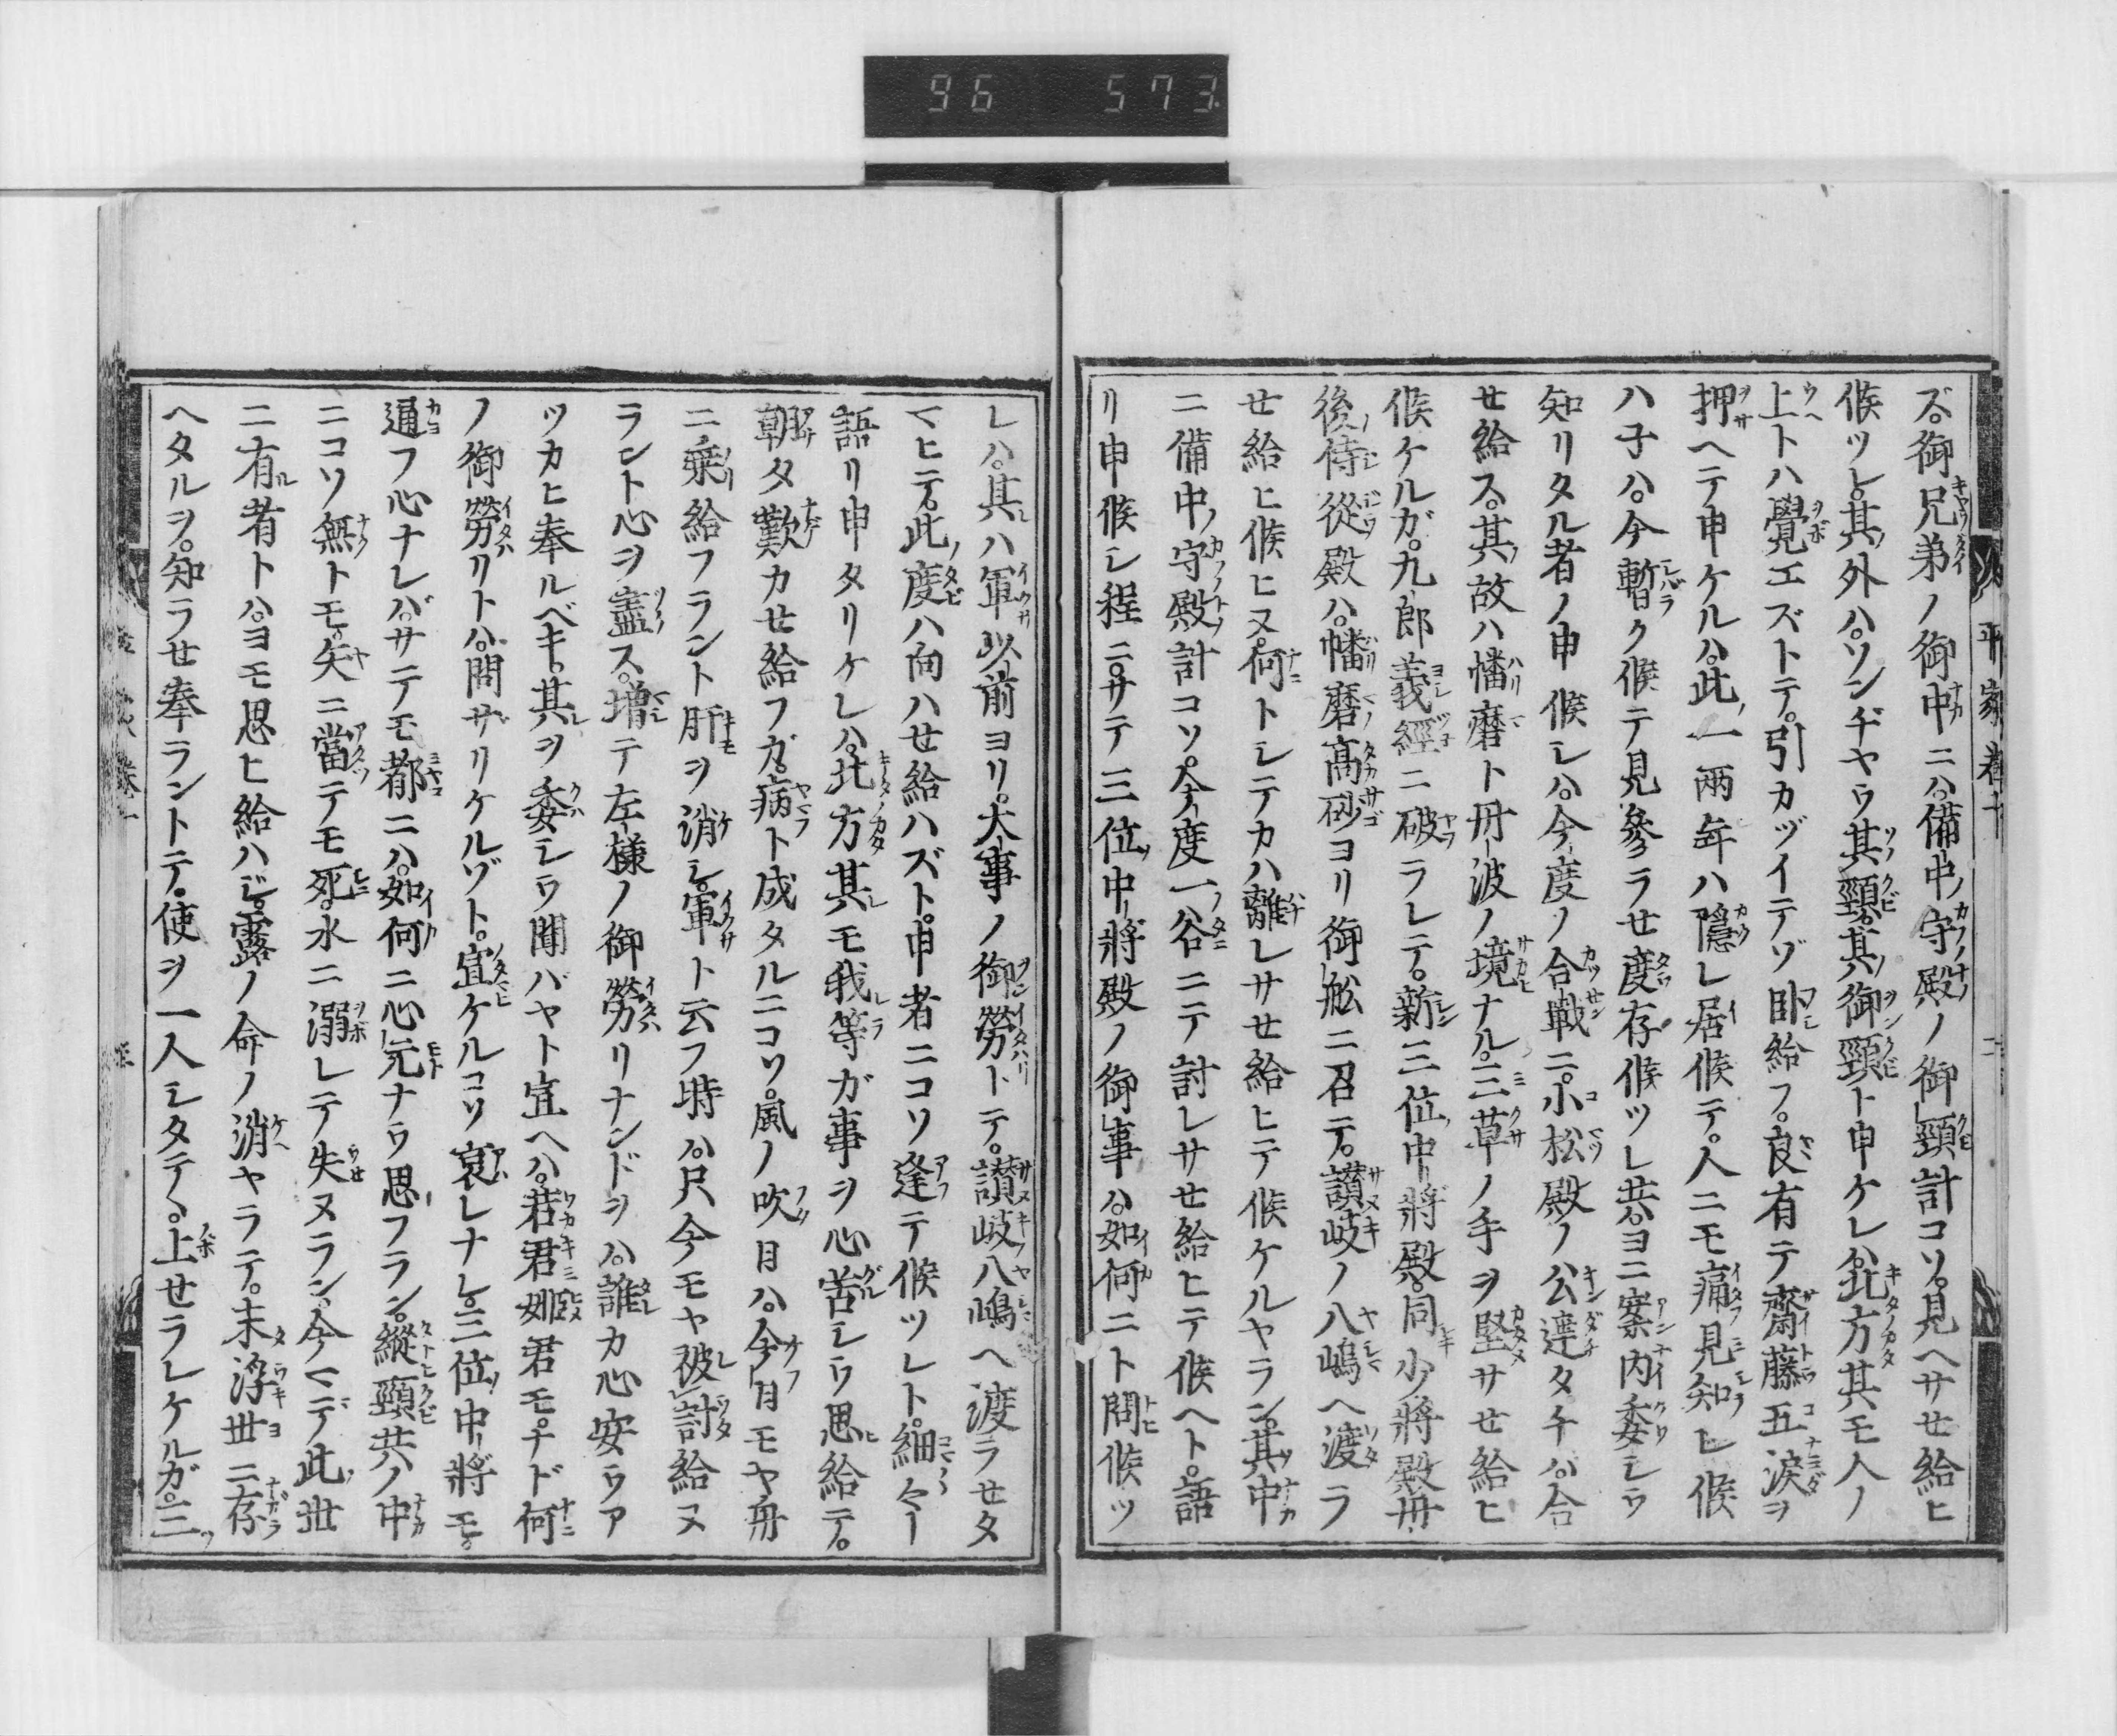 96 573
平家巻十
ズ。御兄弟ノ御中ニハ。備中ノ守殿ノ御頸計コソ。見ヘサせ給ヒ
候ツレ。其外ハ。ソンヂヤウ其頸。其ノ御頸ト申ケレハ。北方其モ人ノ
上トハ覺エズトテ。引カヅイテゾ臥給フ。良有テ齋藤五涙ヲ
押ヘテ申ケルハ。此ノ一兩年ハ隱レ居候テ。人ニモ痛見知レ候
ハ子ハ。今暫ク候テ見參ラせ度存候ツレ共。ヨニ案内委シウ
知リタル者ノ申候シハ。今度ノ合戰ニ。小松殿ノ公達タチハ。合
せ給ス。其ノ故ハ幡磨ト丹波ノ境ナル。三草ノ手ヲ堅サせ給ヒ
候ケルガ。九郎義經ニ破ラレテ。新三位ノ中將殿。同少將殿。丹
後ノ侍從殿ハ。幡磨ノ高砂ヨリ御舩ニ召テ。讃岐ノ八嶋ヘ渡ラ
せ給ヒ候ヒヌ。何トシテカハ離レサせ給ヒテ候ケルヤラン。其中
ニ備中ノ守殿計コソ。今度一ノ谷ニテ討レサせ給ヒテ候ヘト。語
リ申候シ程ニ。サテ三位ノ中將殿ノ御事ハ。如何ニト問候ツ
レハ。其レハ軍以前ヨリ。大事ノ御勞トテ。讃岐ノ八嶋ヘ渡ラせタ
マヒテ。此ノ度ハ向ハせ給ハズト。申者ニコソ逢テ候ツレト。細々ー
語リ申タリケレハ。北方其レモ我等ガ事ヲ心苦シウ思ヒ給テ。
朝タ歎カせ給フガ。病ト成タルニコソ。風ノ吹日ハ。今日モヤ舟
ニ乘給フラント肝ヲ消シ。軍ト云フ時ハ。只今モヤ彼レ討給ヌ
ラント心ヲ盡ス。増テ左樣ノ御勞リナンドヲハ。誰カ心安ウア
ツカヒ奉ルベキ。其レヲ委シウ聞バヤト宣ヘハ。若君姫君モ。ナド何
ノ御勞リトハ。問ザリケルゾト。宣ケルコソ哀レナレ。三位ノ中將モ。
通フ心ナレバ。サテモ都ニハ。如何ニ心元ナウ思フラン。縱頸共ノ中
ニコソ無トモ。矢ニ當テモ死。水ニ溺レテ失ヌラン。今マデ此ノ世
ニ有ル者トハ。ヨモ思ヒ給ハジ。露ノ命ノ消ヤラテ。未浮世ニ存
ヘタルヲ。知ラせ奉ラントテ。使ヲ一人シタテヽ。上せラレケルガ。三ツ